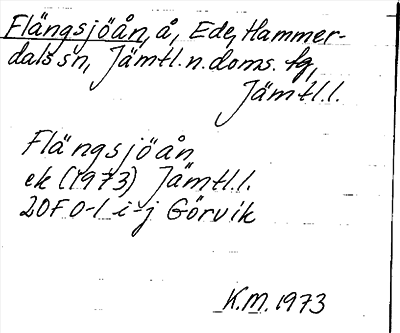 Flängsjöån, å, Ede, Hammer-
dals sn, Jämtl. n. doms. tg,
Jämtl. l.
Flängsjöån
ek (1973) Jämtl. l.
20F 0-1 i-j Görvik
K.M. 1973